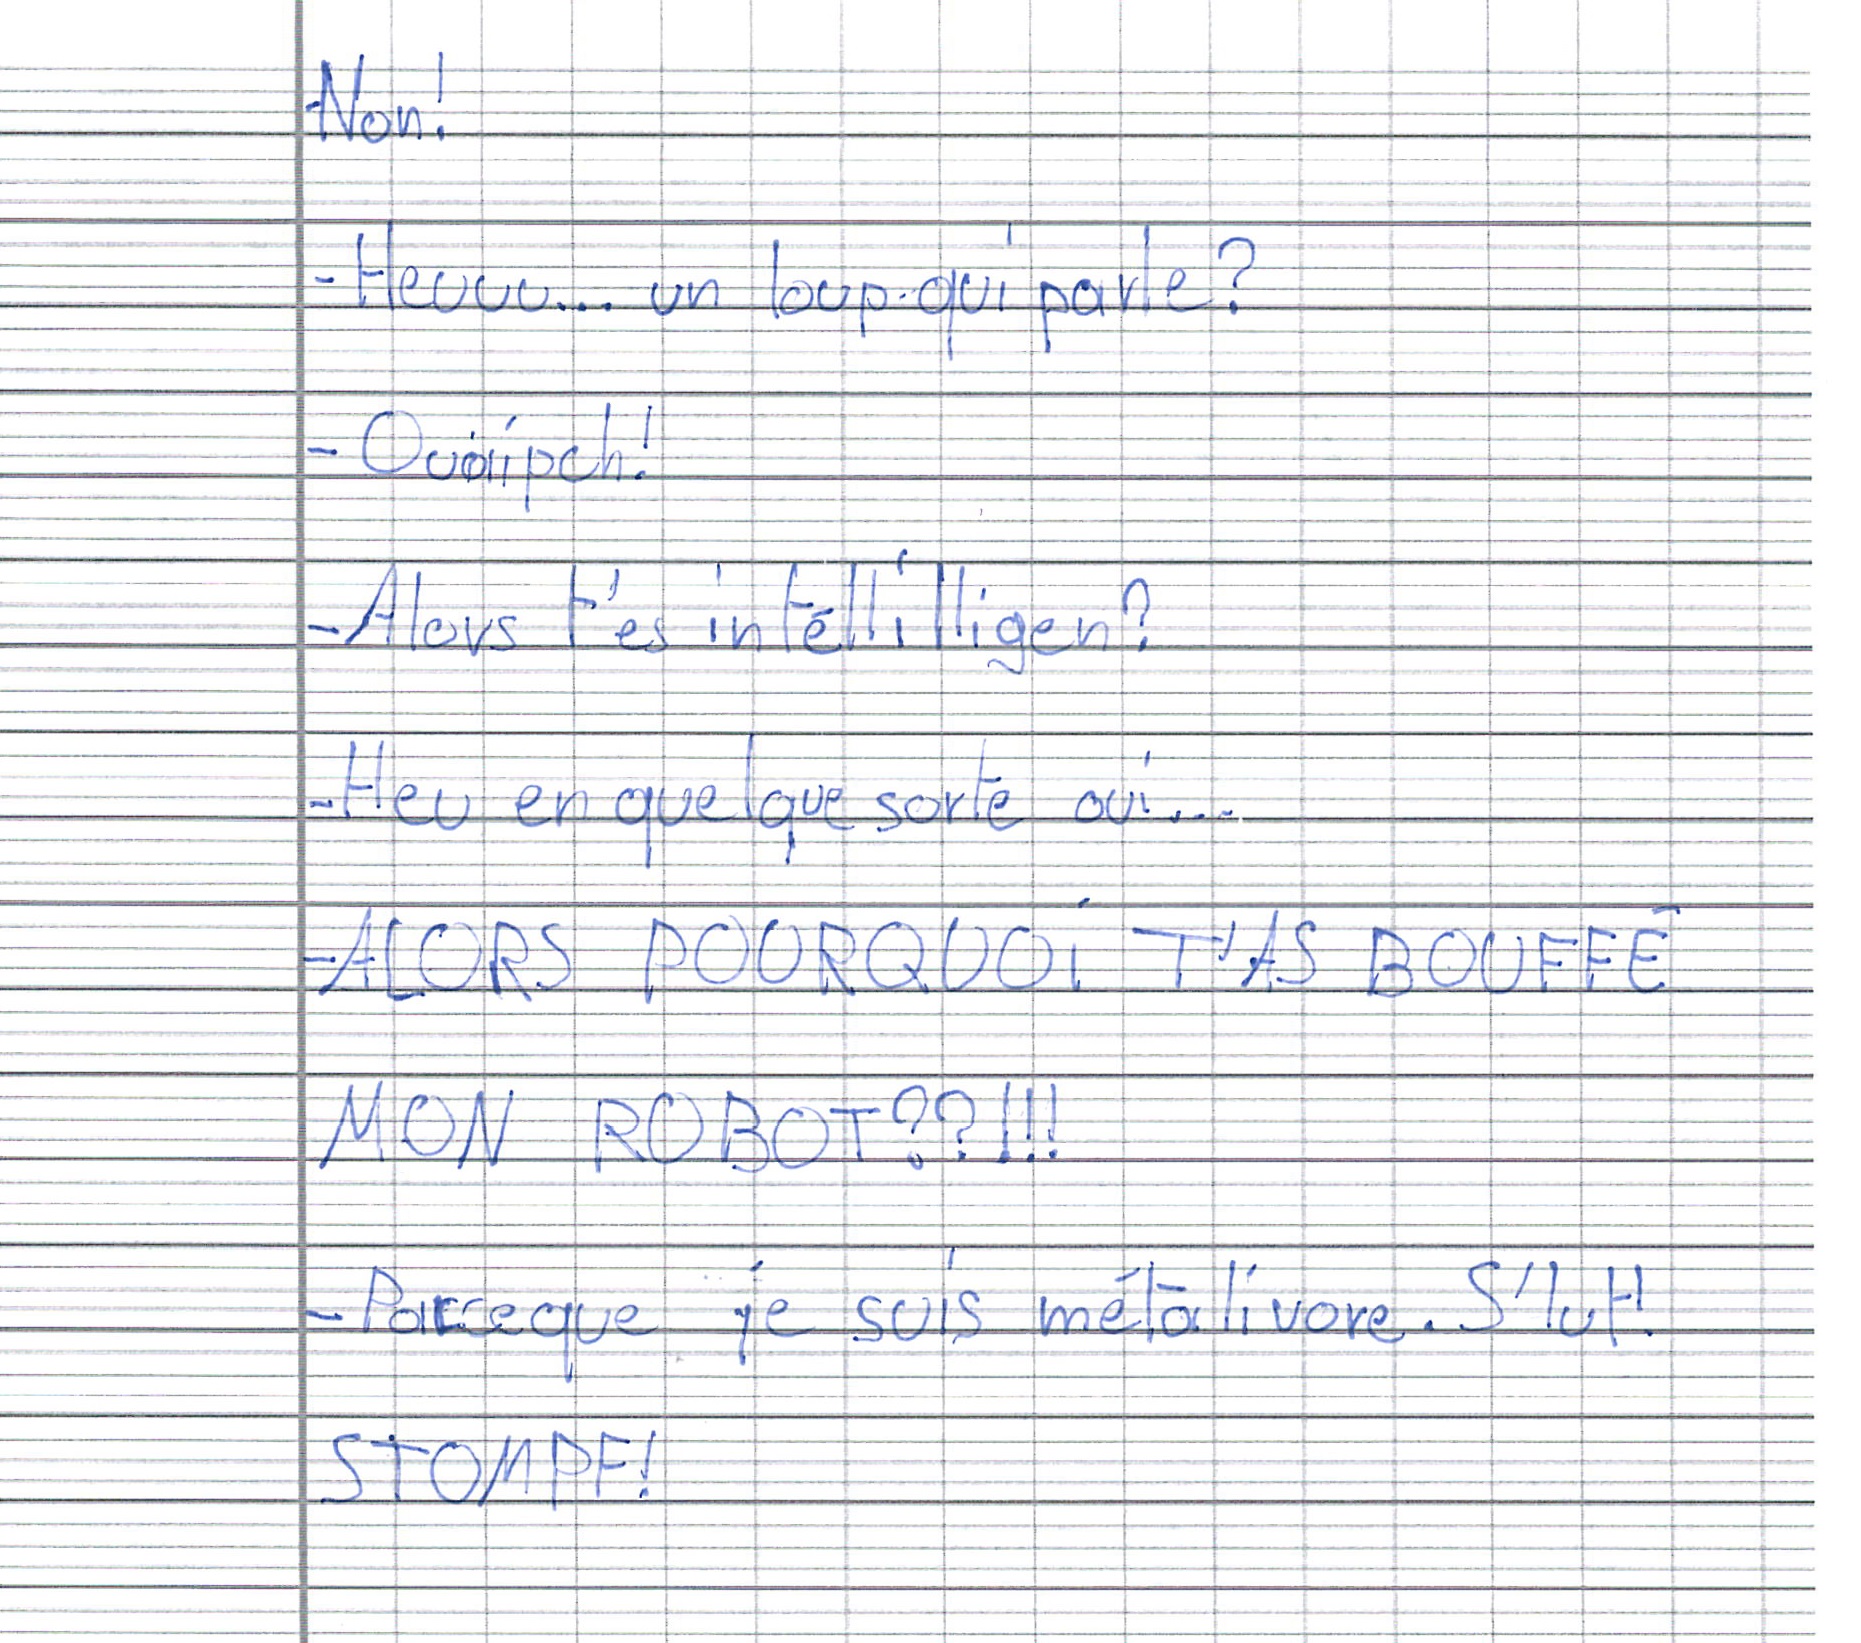 -Non!
-Heuuu... un loup qui parle?
- Ouaipch!
-Alors t'es intéllilligen?
-Heu en quelque sorte oui...
-ALORS POURQUOI T'AS BOUFFÉ
MON ROBOT??!!!
-Parceque je suis métalivore. S'lut!
STOMPF!